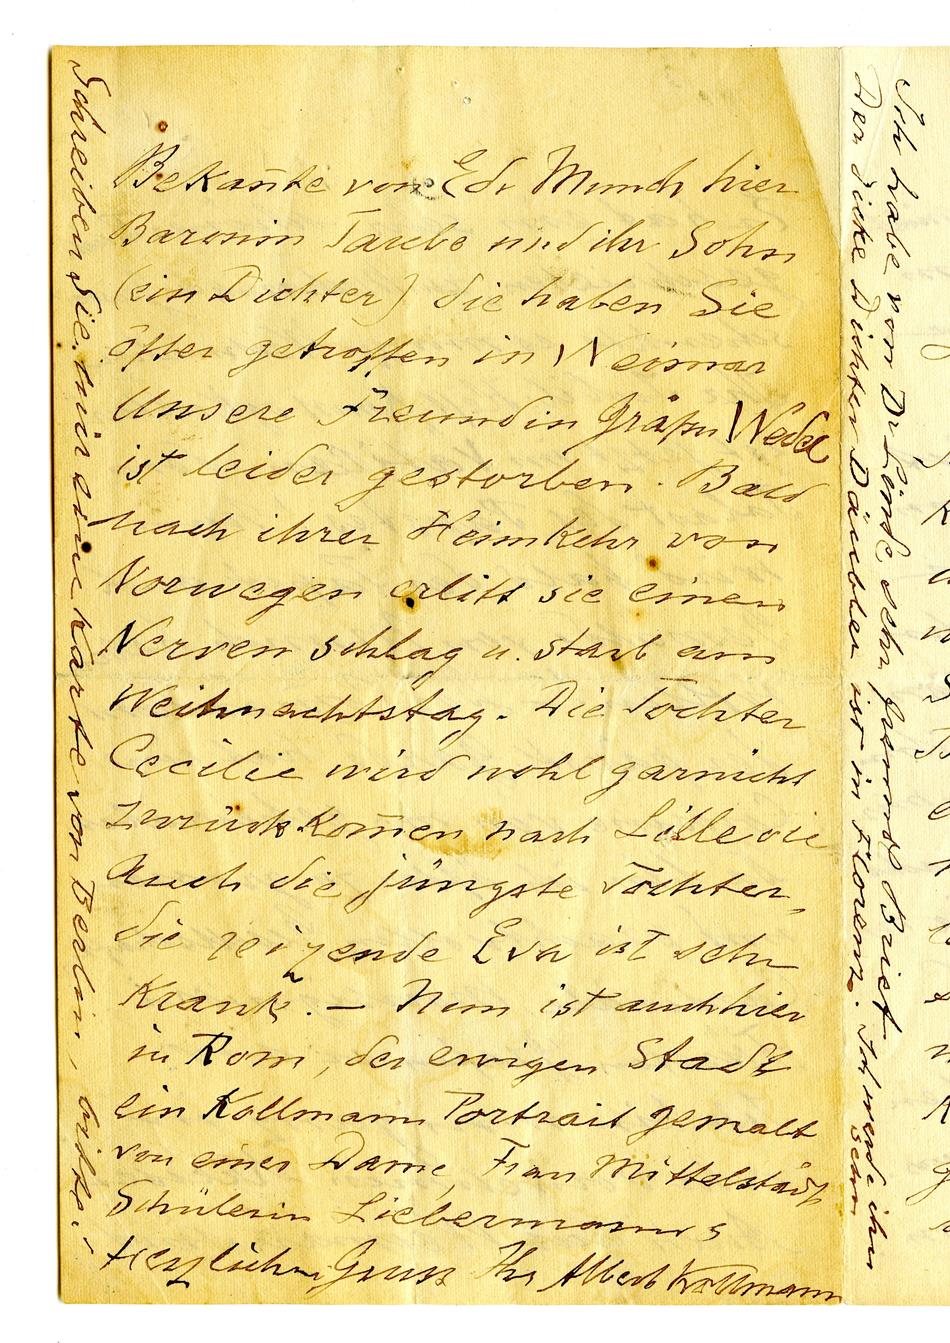 Bekan̄te von Ed. Munch hier
Baronin Taube und ihr Sohn
(ein Dichter) die haben Sie
öfter getroffen in Weimar
Unsere Freundin Gräfin Wedel
ist leider gestorben. Bald
nach ihrer Heimkehr von
Norwegen erlitt sie einen
Nervenschlag u. starb am
Weihnachtstag. Die Tochter
Cecilie wird wohl garnicht
zurückkom̄en nach
Auch die jüngste Tochter,
die reizende Eva ist sehr
Krank. – Nun ist auch hier
in Rom, der ewigen Stadt
ein Kollmann Portrait gemalt
von einer Dame, Frau Mittelstädt
Schülerin Liebermanns
Herzlichen Gruss Ihr Albert Kollmann
Schreiben Sie mir eine Karte von Berlin, bitte!
Ich habe von Dr Linde sehr Brief
Der dicke Dichter Däubler ist in Florenz. Ich werde ihn
sehen